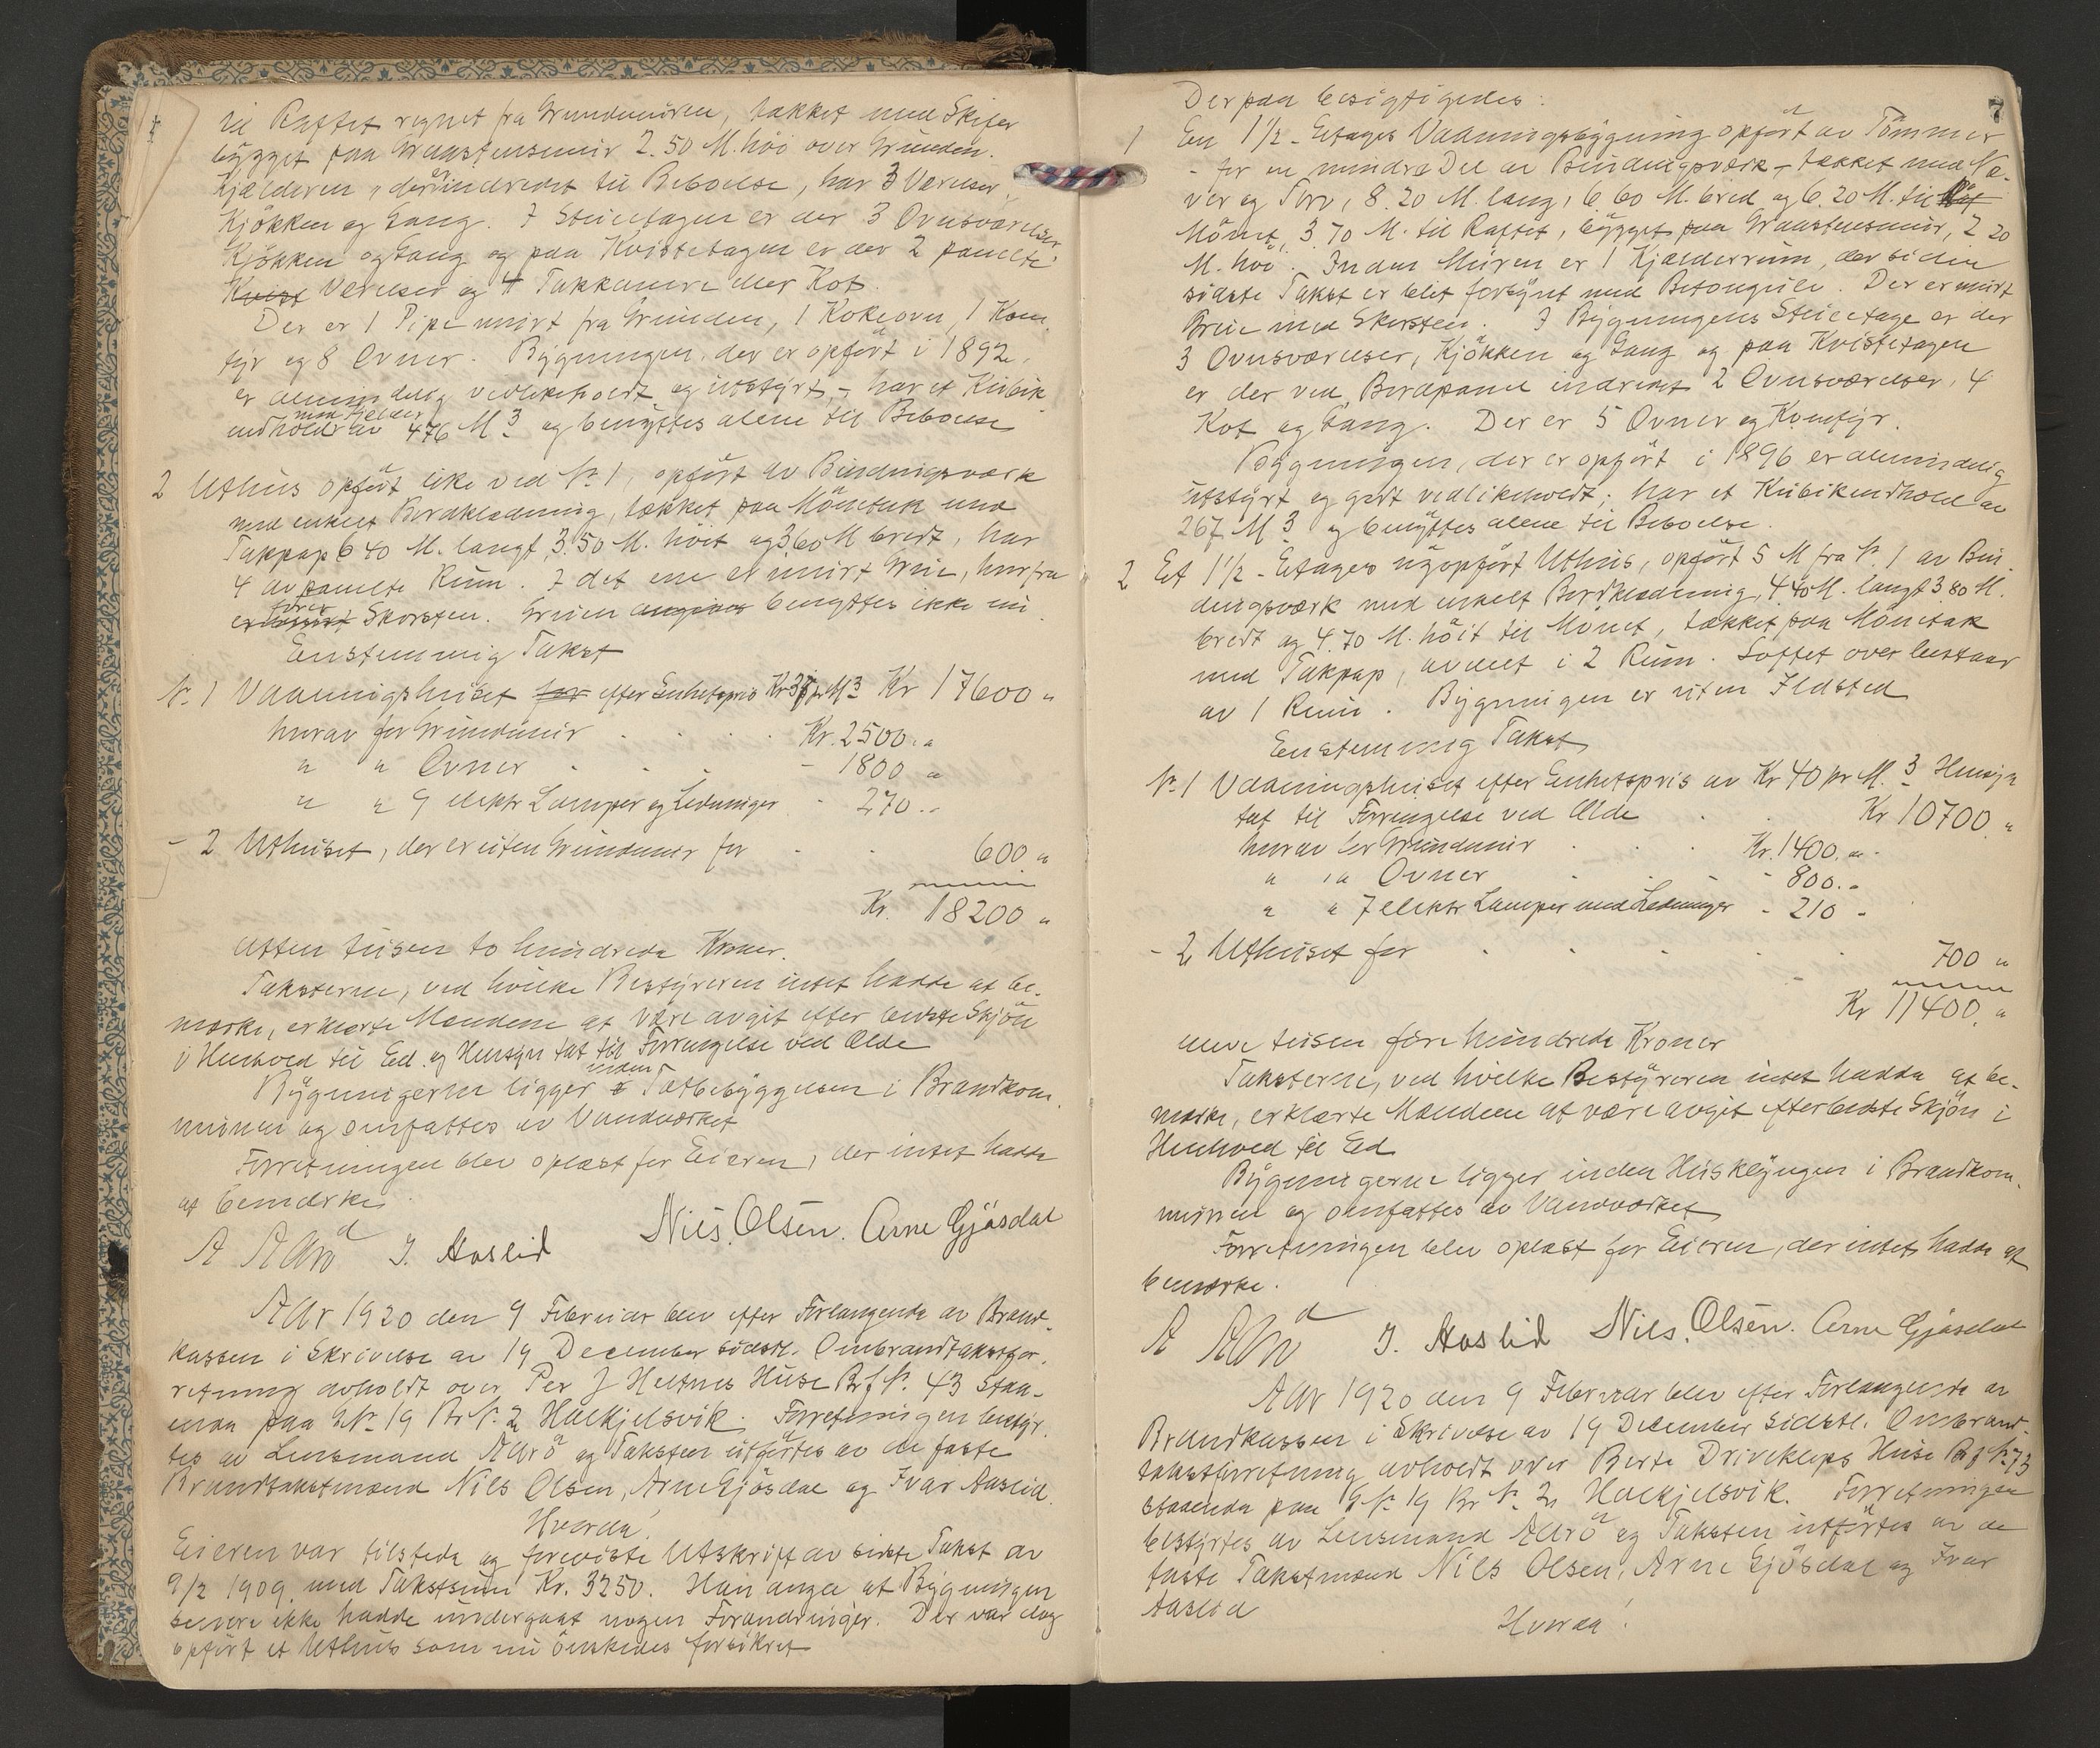 til Raftet regnet fra Grundmuren, takket med Skifer
bygget paa Graastensmur 2.50 M. höi over Grunden.
Kjælderen, der er indredet til Beboelse, har 3 Værelser
Kjökken og Gang. I Stueetagen er der 3 Ovnsværelser
Kjökken og Gang og paa Kvistetagen er der 2 panelte
Kvist Værelser og 4 Takkamre eller Kot.
Der er 1 Pipe muret fra Grunden, 1 Kokeovn 1 Kom
fyr og 8 Ovner. Bygningen, der er opført i 1892,
er almindelig vedlikeholdt og utstyrt, - har et Kubik
med Kjelder
indhold av 476 M3 og benyttes alene til Beboelse
2 Uthus opført like ved No 1, opført av Bindingsværk
med enkelt Bordklædning, tækket paa Mönetak med
Takpap 6 40 M. langt, 3.50 M. höit og 3.60 M bredt, har
4 avpanelte Rum. I det ene er murt Grue, hvorfra
er fört Skorsten. Gruen angives benyttes ikke nu
Enstemmig Takst
No. 1 Vaaningshuset for efter Enhetspris Kr 37 pr M3 Kr 17600 "
hvorav for Grundmur . . . . Kr. 2500. "
" " Ovner . . . - 1800 "
" " 9 elektr Lamper og Ledninger - 270. "
- 2 Uthuset, der er uten Grundmur for . . 600 "
Kr. 18200 "
Atten tusen to hundrede Kroner.
Taksterne, ved hvilke Bestyreren intet hadde at be-
mærke, erklærte Mændene at være avgit efter bedste Skjön
i Henhold til Ed. og Hensyn tat til Forringelse ved Ælde
Bygningerne ligger inden Tætbebyggelsen i Brandkom
munen og omfattes av Vandværket
Forretningen blev oplæst for Eieren, der intet hadde
at bemærke.
A Aarö I. Aaslid Nils. Olsen. Arne Gjösdal
Aar 1920 den 9 Februar blev efter Forlangende av Brand-
kassen i Skrivelse av 19 December sidstl. Ombrandtakstfor-
retning avholdt over Per J Heltnes Huse Brf No. 43 staa-
ende paa GNo. 19 Br No. 2 Halkjelsvik. Forretningen besty-
tes av Lensmand Aarö og Taksten utførtes av de faste
Brandtakstmænd Nils Olsen, Arne Gjösdal og Ivar Aaslid.
Hvorda!
Eieren var tilstede og foreviste Utskrift av sidste Takst av
9/2 1909 med Takstsum Kr. 3250. Han angav at Bygningen
senere ikke hadde undergaat nogen Forandringer. Der var dog
opført et Uthus som nu önskedes forsikret
7
Der paa besigtigedes:
1 En 1 1/2 - Etages Vaaningsbygning opfört av Tömmer
- for en mindre Del av Bindingsværk - tækket med Næ-
ver og Torv, 8.20 M. lang, 6 60 M. bred og 6.20 M. til
Mönet, 3.70 M. til Raftet, bygget paa Graastensmur, 2 20
M. höi. Inden Muren er 1 Kjælderrum, der siden
sidste Takst er blit forsynet med Betongulv. Der er murt
Grue med Skorsten. I Bygningens Stueetage er der
3 Ovnsværelser, Kjökken og Gang og paa Kvistetagen
er der ved Bordpanel indredet 2 Ovnsværelser, 4
Kot og Gang. Der er 5 Ovner og Komfyr.
Bygningen, der er opfört i 1896 er almindelig
utstyrt og godt vedlikeholdt; har et Kubikindhold av
267 M3 og benyttes alene til Beboelse.
2 Et 1 1/2 - Etages nyopfört Uthus, opfört 5 M fra No. 1 av Bin-
dingsværk med enkelt Bordklædning, 4 40 M. langt 3 80 M.
bredt og 4.70 M. höit til Mönet, tækket paa Mönetak
med Takpap, avdelt i 2 Rum. Loftet over bestaar
av 1 Rum. Bygningen er uten Ildsted
Enstemmig Takst
No. 1 Vaaningshuset efter Enhetspris av Kr 40 pr M.3 Hensyn
tat til Forringelse ved Ælde . . Kr 10700. "
hvorav for Grundmur . . . Kr. 1400. "
" " Ovner . . . - 800. "
" " 7 elektr Lamper med Ledninger - 210 -
- 2 Uthuset for . . . . . 700 "
Kr 11400. "
elleve tusen fire hundrede Kroner
Taksterne, ved hvilke Bestyreren intet hadde at be-
mærke, erklærte Mændene at være avgit efter bedste Skjön i
Henhold til Ed
Bygningerne ligger inden Husklyngen i Brandkom-
munen og omfattes av Vandværket
Forretningen blev oplæst for Eieren, der intet hadde at
bemærke.
A Aarö I. Aaslid Nils. Olsen. Arne Gjösdal
Aar 1920 den 9 Februar blev efter Forlangende av
Brandkassen i Skrivelse av 19 December sidstl. Ombrand-
takstforretning avholdt over Berte Drivekleps Huse Brf No. 73
staaende paa GNo. 19 Br No. 2 Halkjelsvik. Forretningen
bestyrtes av Lensmand Aarö og Taksten utførtes av de
faste Takstmænd Nils Olsen, Arne Gjösdal og Ivar
Aaslid
Hvorda!